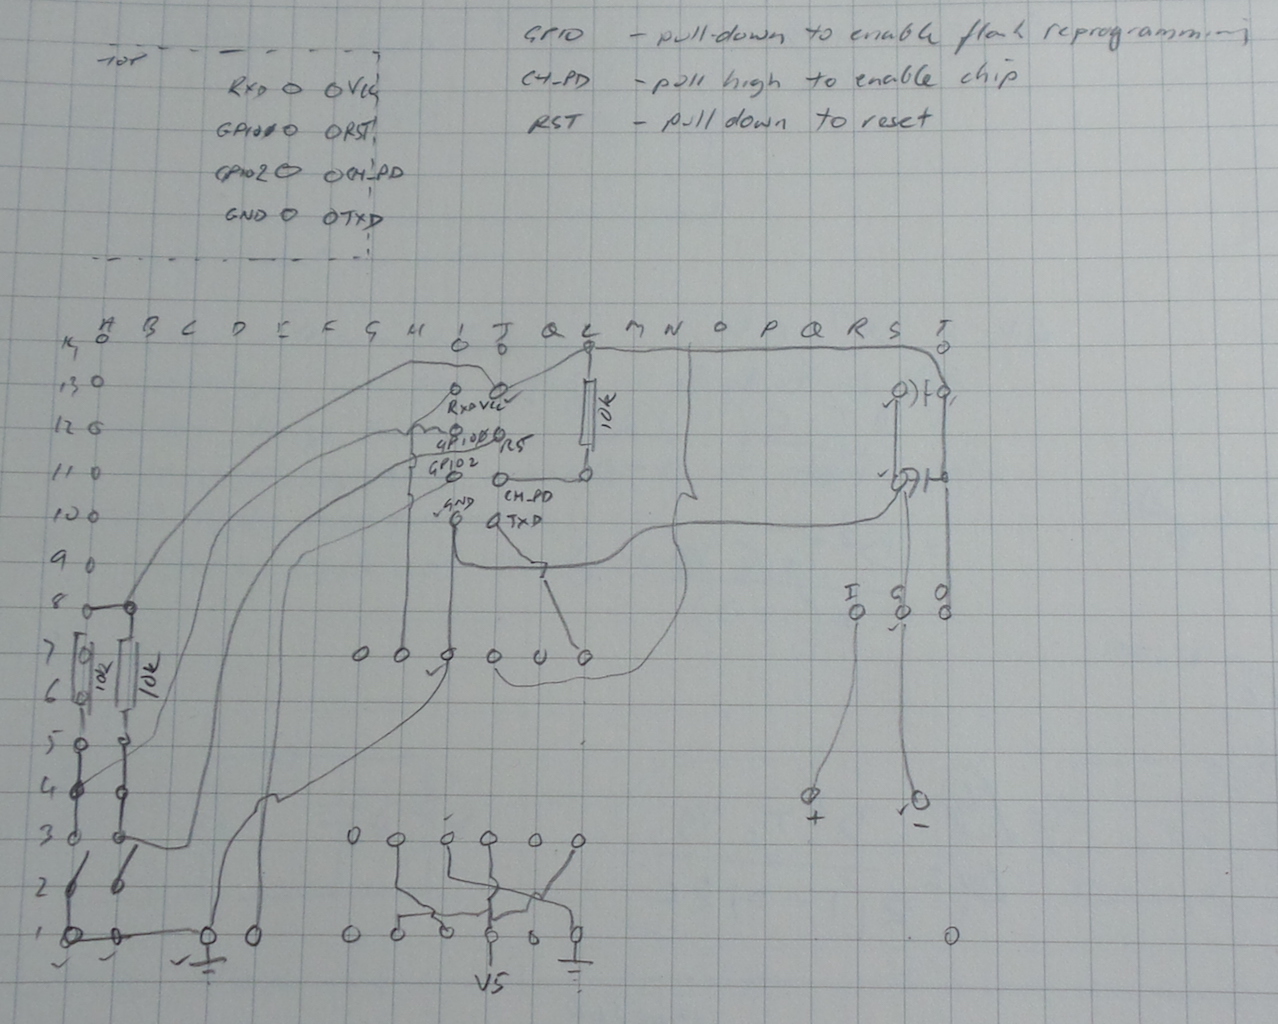 GPIO - pull-down to enable flash reprogramming
CH_PD - pull high to enable chip
RST - pull down to reset
TOP
RXD VCC
GPIO0 RST
GPIO2 CH_PD
GND TXD
A B C D E F G H I J Q L M N O P Q R S T
13
RXD VCC
10K
12
GPIO0 RS
GPIO2
11
CH_PD
GND
10
TXD
9
I G O
8
7
10K 10K
6
5
4
+ -
3
2
1
V5